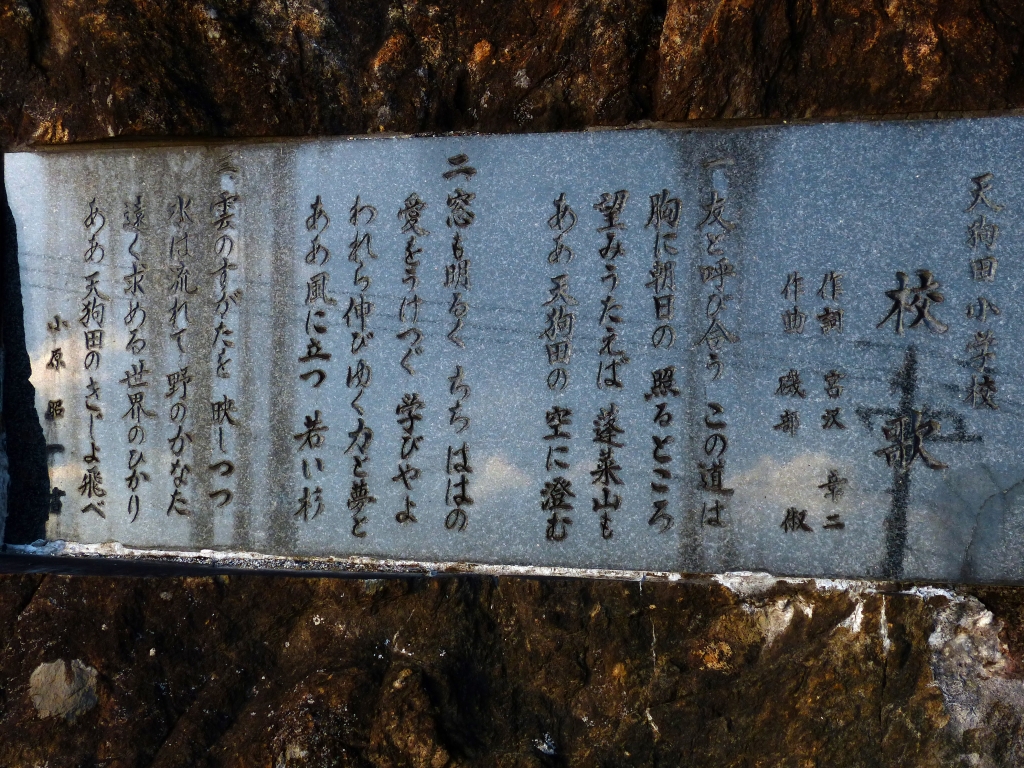 天狗田小学校
校歌
作詞 宮沢 章二
作曲 磯部 俶
一 友と呼び合う この道は
胸に朝日の 照るところ
望みうたえば 蓬莱山も
ああ 天狗田の 空に澄む
二 窓も明るく ちち ははの
愛をうけつぐ 学びやよ
われら伸びゆく 力と夢と
ああ 風に立つ 若い杉
三 雲のすがたを 映しつつ
水は流れて 野のかなた
遠く求める 世界のひかり
ああ 天狗田の きじよ飛べ
小原 昭